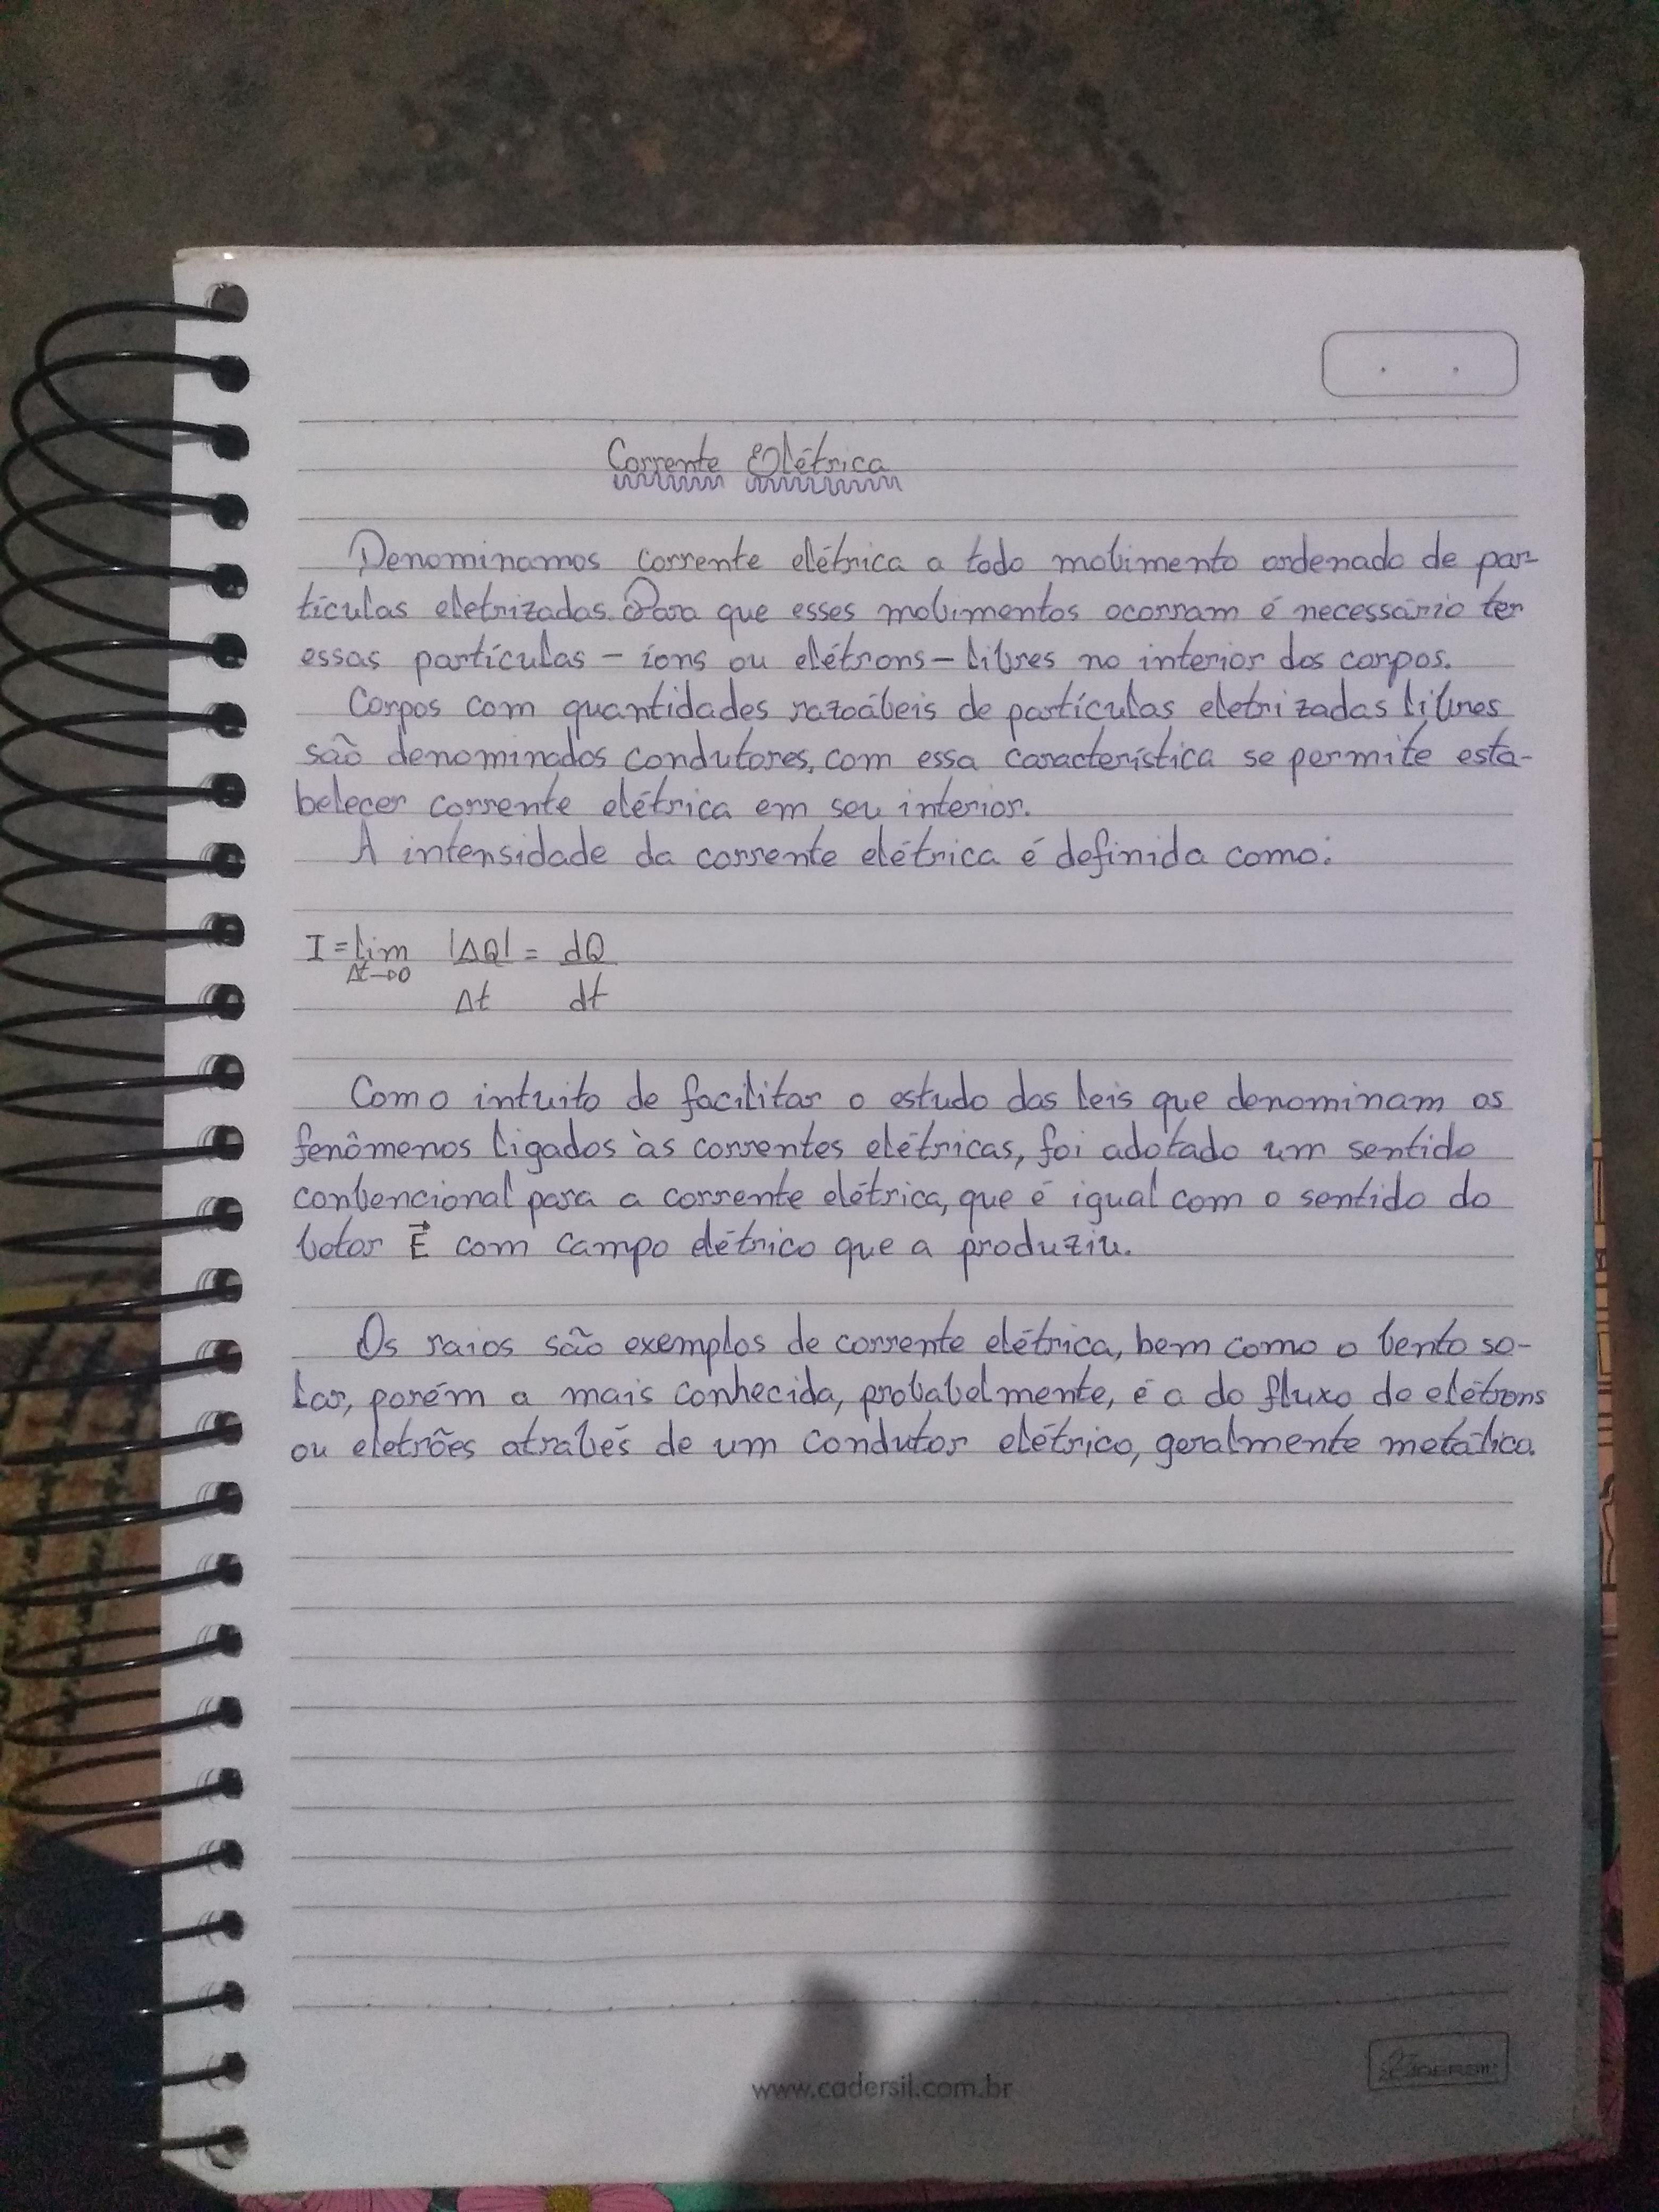 Corrente Elétrica
Denominamos corrente elétrica a todo movimento ordenado de par-
tículas eletrizadas. Para que esses movimentos ocorram é necessário ter
essas partículas - íons ou elétrons - livres no interior dos corpos.
Corpos com quantidades razoáveis de partículas eletrizadas livres
são denominados condutores, com essa característica se permite esta-
belecer corrente elétrica em seu interior.
A intensidade da corrente elétrica é definida como:
I = lim |ΔQ| = dQ
Δt→0 Δt dt
Com o intuito de facilitar o estudo das leis que denominam os
fenômenos ligados às correntes elétricas, foi adotado um sentido
convencional para a corrente elétrica, que é igual com o sentido do
vetor E⃗ com campo elétrico que a produziu.
Os raios são exemplos de corrente elétrica, bem como o vento so-
lar, porém a mais conhecida, provavelmente, é a do fluxo de elétrons
ou eletrões através de um condutor elétrico, geralmente metálico.
www.cadersil.com.br
CADERSIL